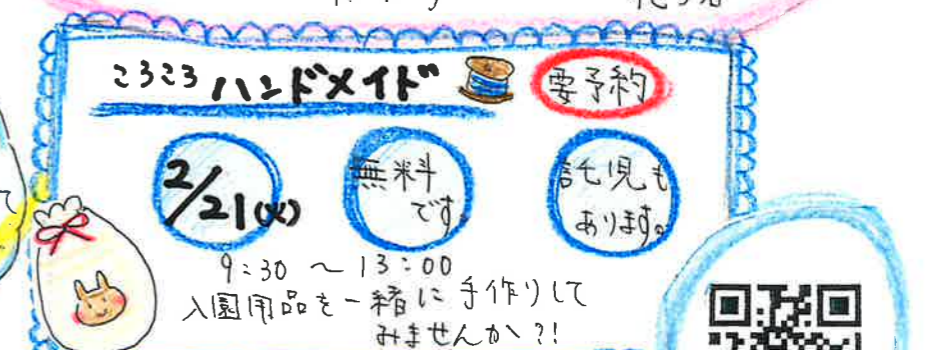 ころころハンドメイド
要予約
2/21(火)
無料
です。
託児も
あります。
9:30 ~ 13:00
入園用品を一緒に手作りして
みませんか?!